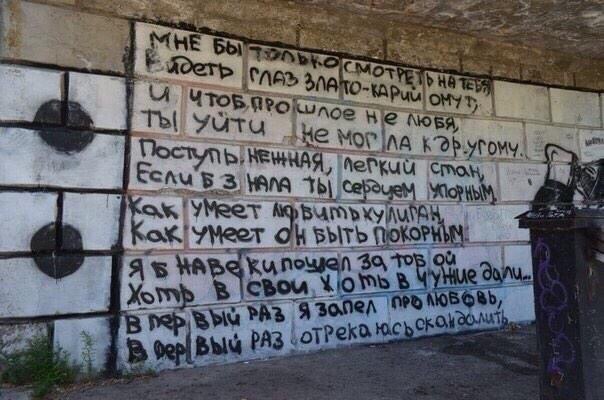 МНЕ БЫ ТОЛЬКО СМОТРЕТЬ НА ТЕБЯ,
ВИДЕТЬ ГЛАЗ ЗЛАТО-КАРИЙ ОМУТ,
И ЧТОБ, ПРОШЛОЕ НЕ ЛЮБЯ,
ТЫ УЙТИ НЕ МОГЛА К ДРУГОМУ.
ПОСТУПЬ НЕЖНАЯ, ЛЕГКИЙ СТАН,
ЕСЛИ Б ЗНАЛА ТЫ СЕРДЦЕМ УПОРНЫМ,
КАК УМЕЕТ ЛЮБИТЬ ХУЛИГАН,
КАК УМЕЕТ ОН БЫТЬ ПОКОРНЫМ.
Я Б НАВЕКИ ПОШЕЛ ЗА ТОБОЙ
ХОТЬ В СВОИ ХОТЬ В ЧУЖИЕ ДАЛИ...
В ПЕРВЫЙ РАЗ Я ЗАПЕЛ ПРО ЛЮБОВЬ,
В ПЕРВЫЙ РАЗ ОТРЕКАЮСЬ СКАНДАЛИТЬ